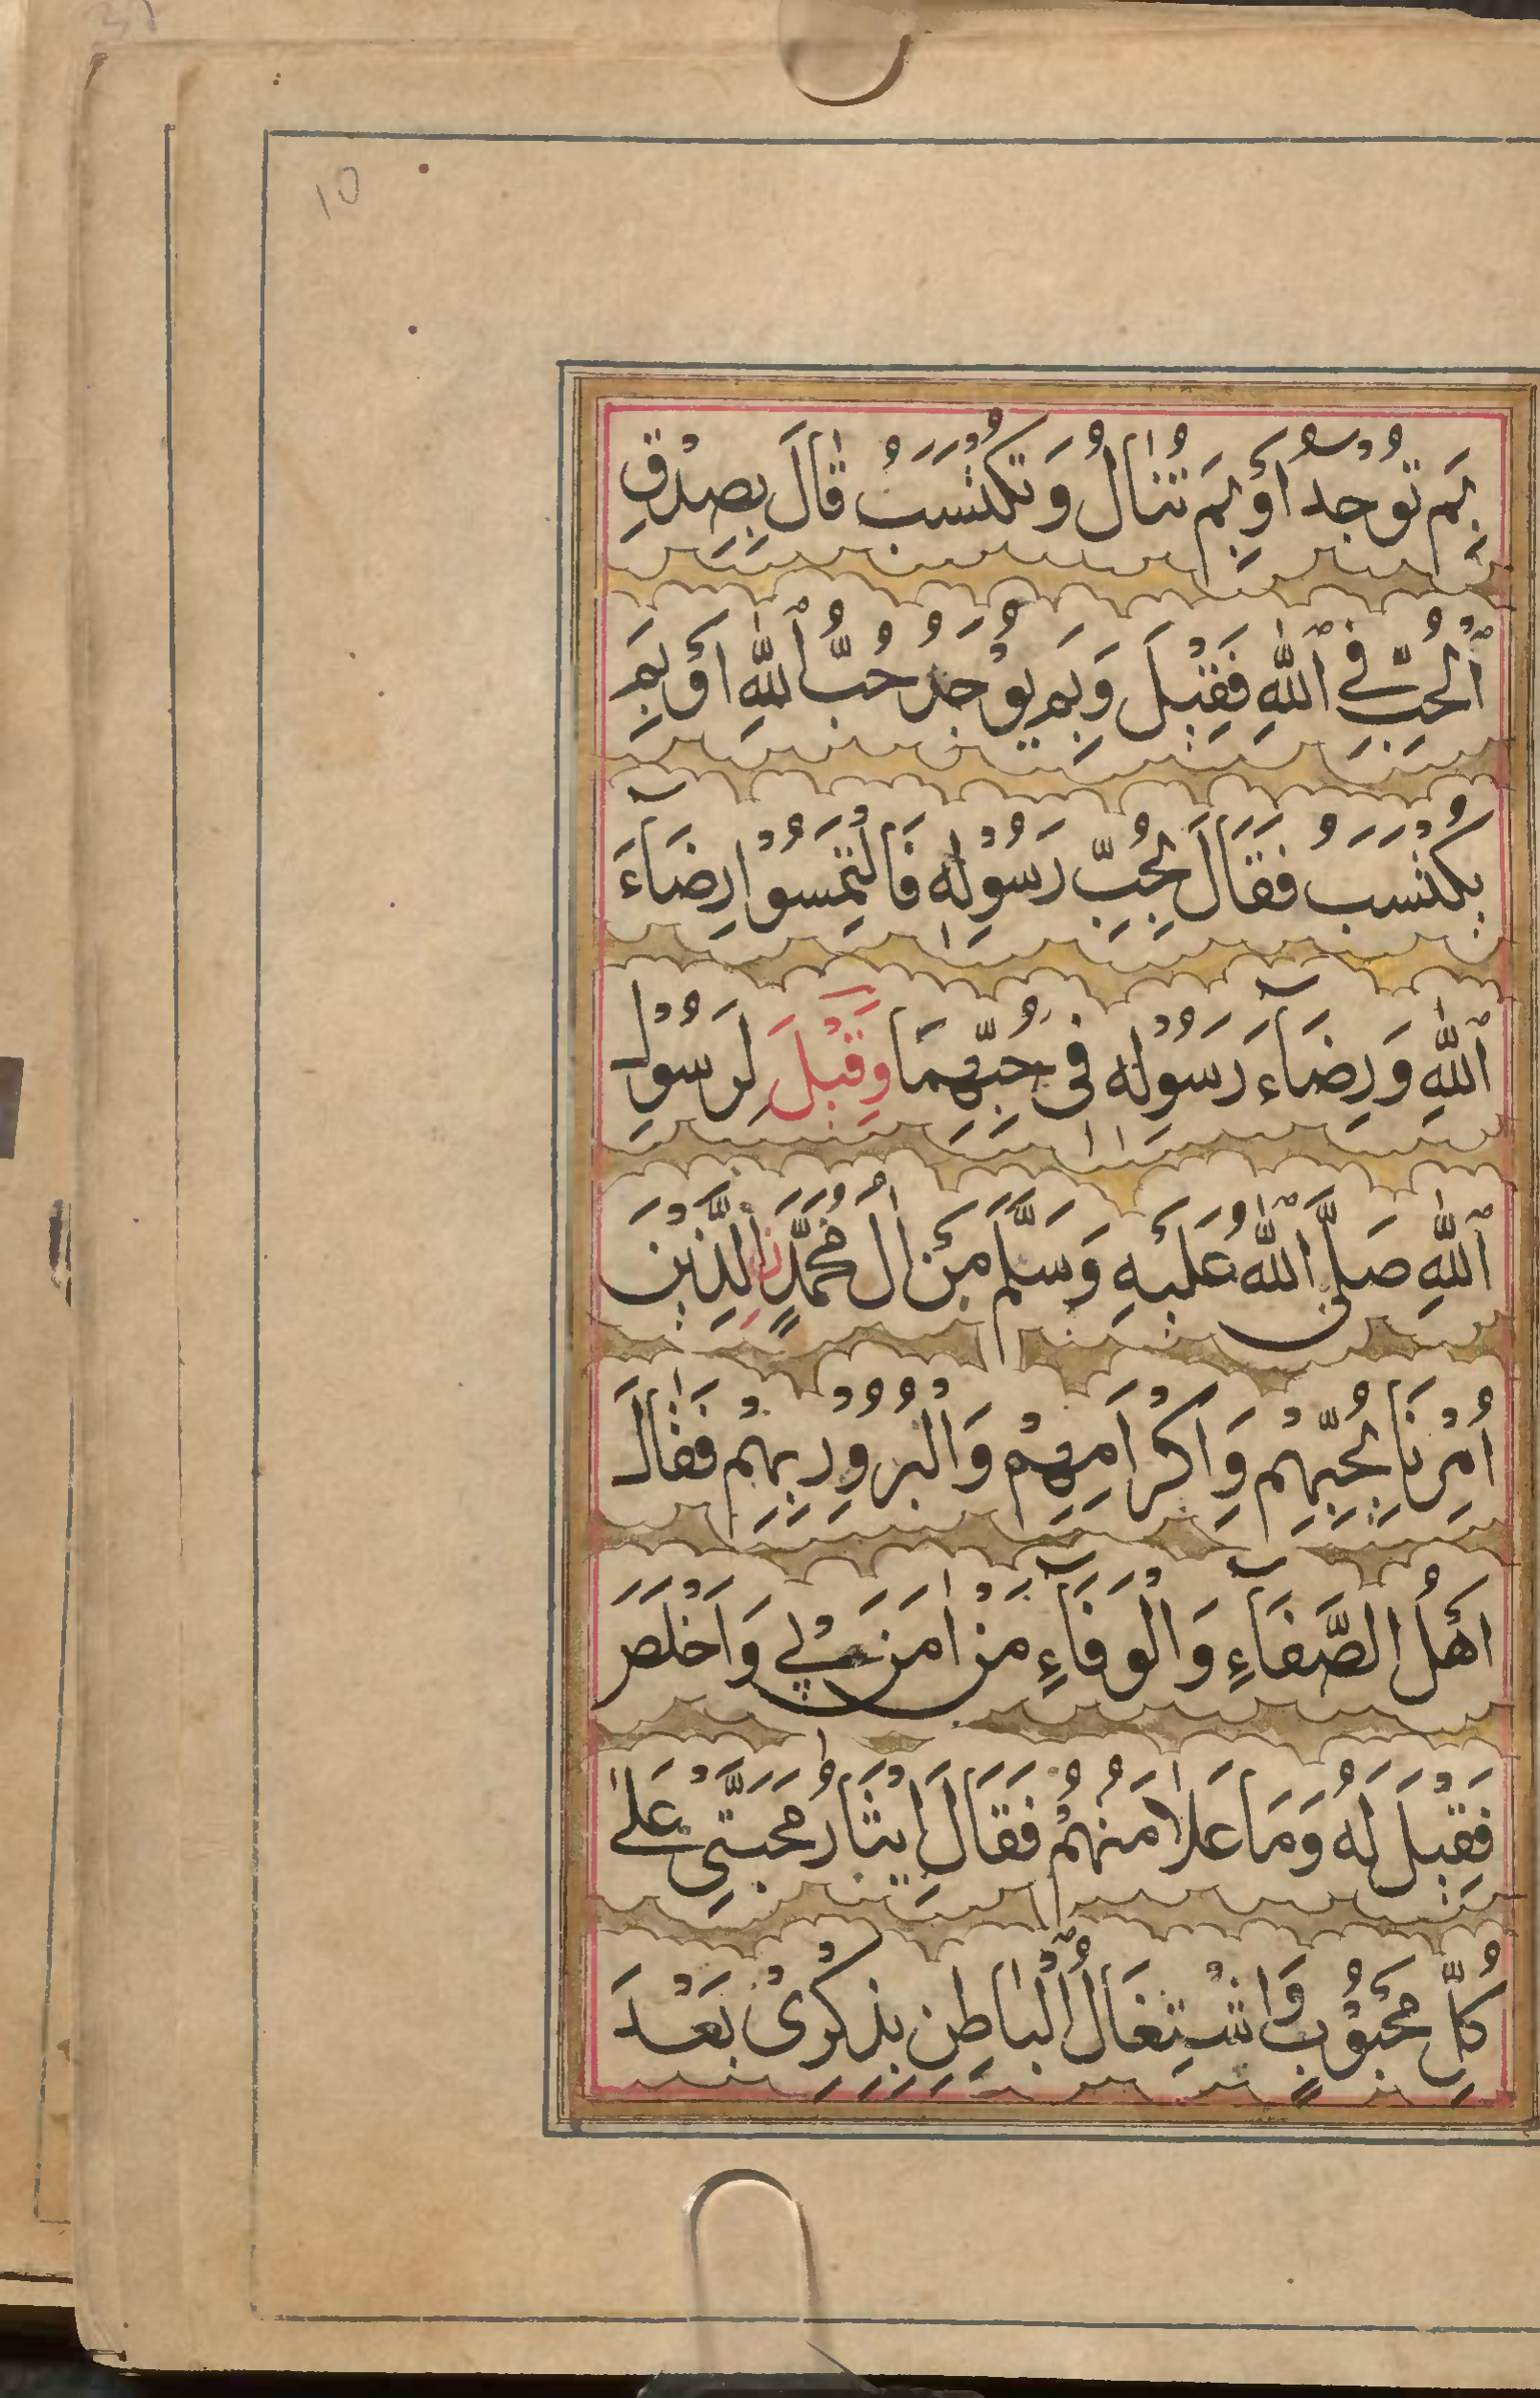 10
بِمَ تُوْجَدُ أَوْ بِمَ تُنَالُ وَتُكْتَسَبُ قَالَ بِصِدْقِ
ٱلْحُبِّ فِي ٱللّٰهِ فَقِيْلَ وَبِمَ يُوْجَدُ حُبُّ ٱللّٰهِ اَوْ بِمَ
يُكْتَسَبُ فَقَالَ بِحُبِّ رَسُوْلِهٖ فَالْتَمِسُوْا رِضَآءَ
ٱللّٰهِ وَرِضَآءَ رَسُوْلِهٖ فِي حُبِّهِمَا وَقِيْلَ لِرَسُوْلِ
ٱللّٰهِ صَلَّى ٱللّٰهُ عَلَيْهِ وَسَلَّمَ مَنْ اٰلُ مُحَمَّدٍ نِ الَّذِيْنَ
اُمِرْنَا بِحُبِّهِمْ وَاِكْرَامِهِمْ وَالْبُرُوْرِ بِهِمْ فَقَالَ
اَهْلُ الصَّفَآءِ وَالْوَفَآءِ مَنْ اٰمَنَ بِيْ وَاَخْلَصَ
فَقِيْلَ لَهُ وَمَا عَلَامَتُهُمْ فَقَالَ اِيْثَارُ مَحَبَّتِيْ عَلٰى
كُلِّ مَحْبُوْبٍ وَاشْتِغَالُ ٱلْبَاطِنِ بِذِكْرِيْ بَعْدَ